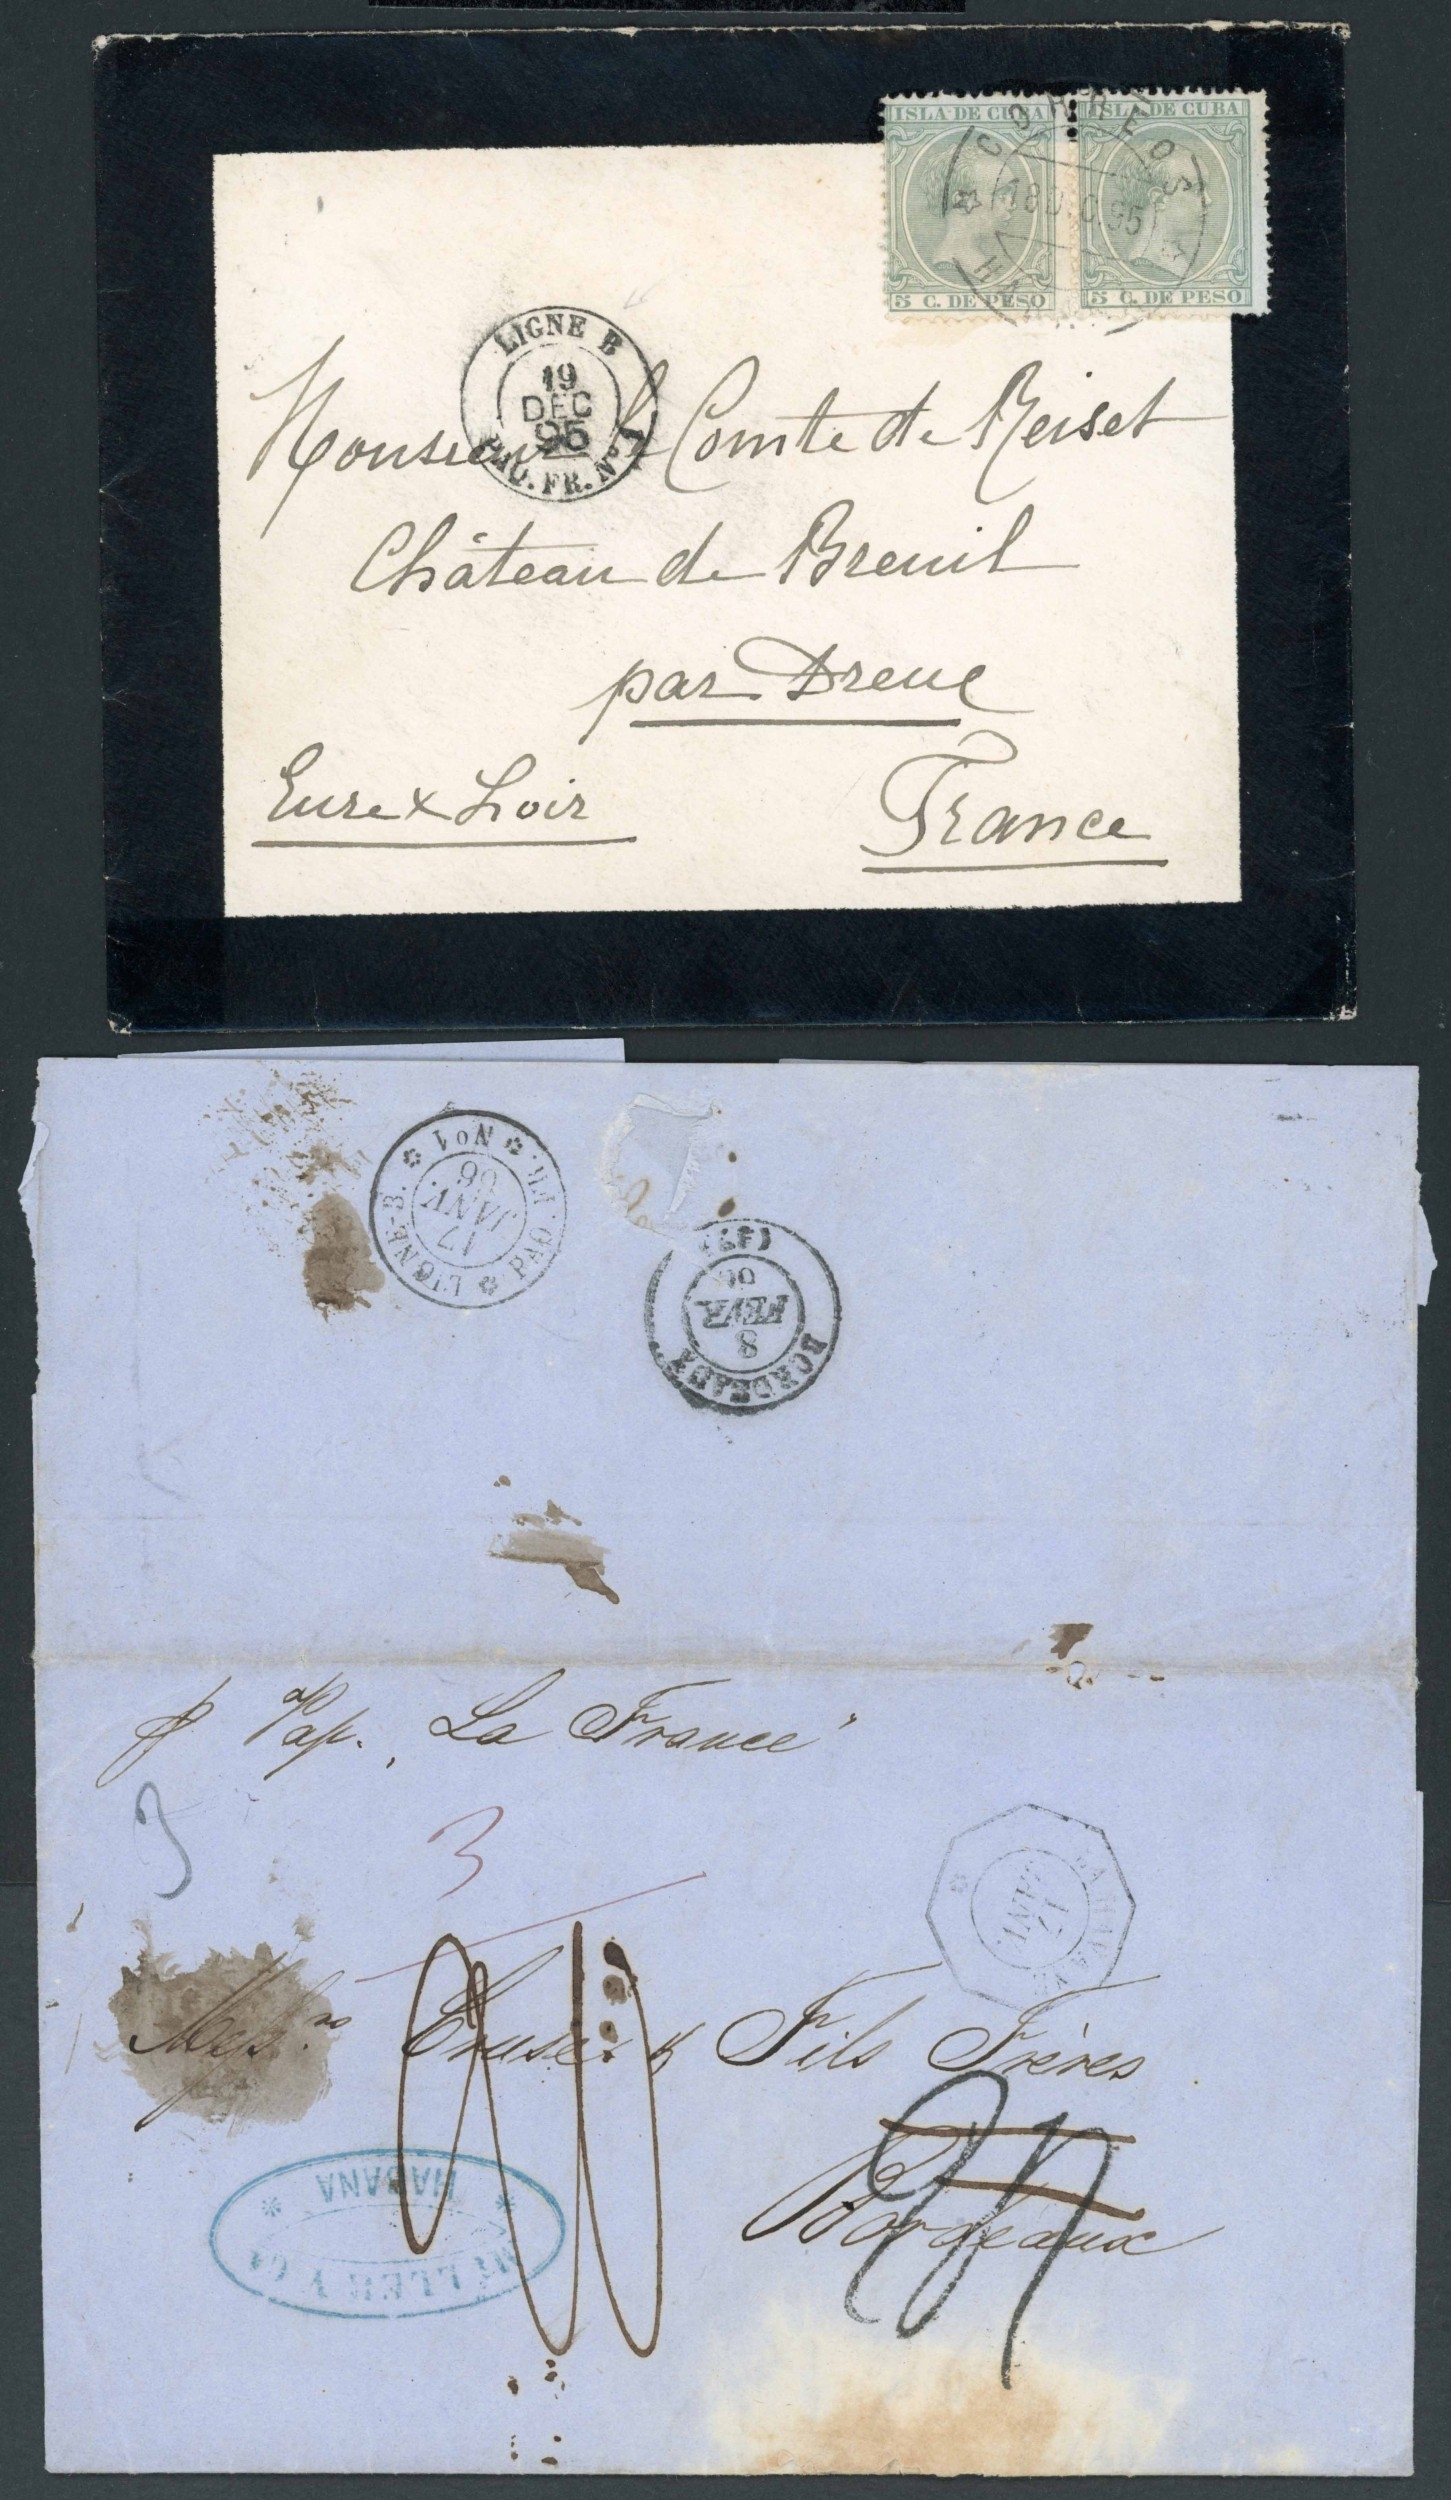 ISLA DE CUBA ISLA DE CUBA
CORREOS
18 DIC 95
HABANA
5 C. DE PESO 5 C. DE PESO
LIGNE B
19
DEC
95
PAQ. FR. Nº 1
Monsieur le Comte de Reiset
Château de Breuil
par Dreux
Eure & Loir
France
LIGNE-B. PAQ. FR. No 1
17
JANV.
66
BORDEAUX
8
FEVR
66
p Pap. "La France"
3
3
LA HAVANE
17
JANV.
Mess.rs & Fils Frères
Bordeaux
MILLER Y CA
HABANA